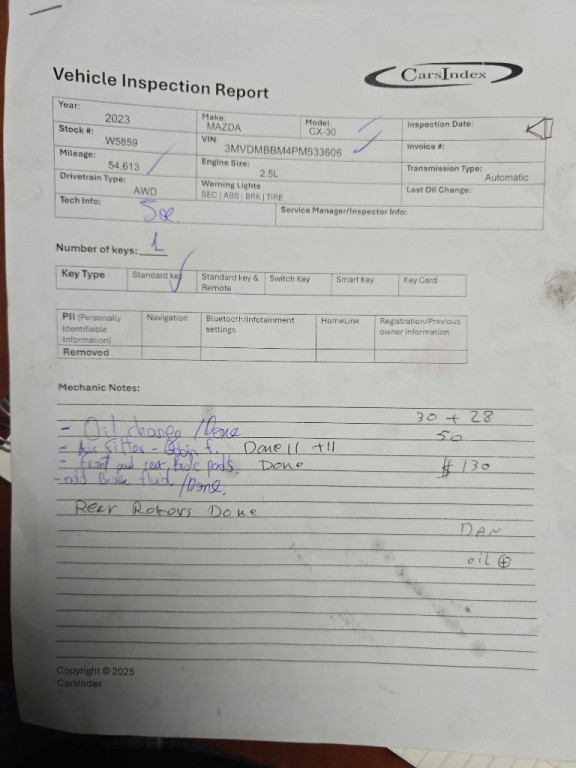 CarsIndex
Vehicle Inspection Report
Year: 2023 Make: MAZDA Model: CX-30 Inspection Date:
Stock #: W5859 VIN: 3MVDMBBM4PM533606 Invoice #:
Mileage: 54,613 Engine Size: 2.5L Transmission Type: Automatic
Drivetrain Type: AWD Warning Lights SEC | ABS | BRK | TIRE Last Oil Change:
Tech Info: Service Manager/Inspector Info:
Number of keys: 1
Key Type Standard key Standard key & Remote Switch Key Smart Key Key Card
PII (Personally Identifiable Information) Navigation Bluetooth/Infotainment settings HomeLink Registration/Previous owner information
Removed
Mechanic Notes:
30 + 28
- Oil change /Done 50
- Air filter - Cabin f. Done 11 +11
- front and rear Brake pads. Done $130
- add Brake fluid /Done.
Rear Rotors Done
oil +
Copyright © 2025
CarsIndex